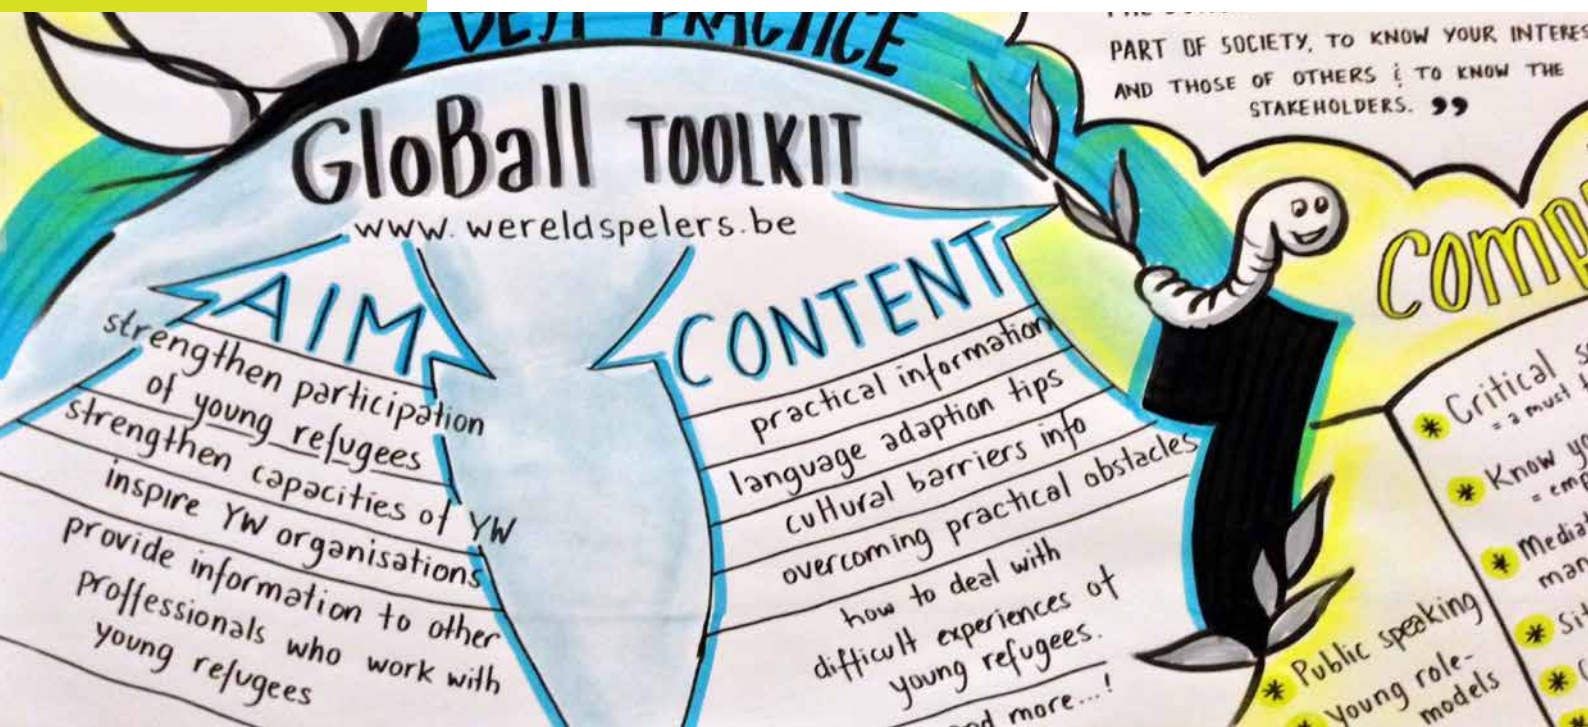 BEST PRACTICE
GloBall TOOLKIT
www.wereldspelers.be
AIM
strengthen participation
of young refugees
strengthen capacities of YW
inspire YW organisations
provide information to other
proffessionals who work with
young refugees
CONTENT
practical information
language adaption tips
cultural barriers info
overcoming practical obstacles
how to deal with
difficult experiences of
young refugees.
more...!
PART OF SOCIETY, TO KNOW YOUR
AND THOSE OF OTHERS & TO KNOW THE
STAKEHOLDERS. ”
* Critical
= a must
* Know
*
*
*
* Public speaking
* Young role-
models